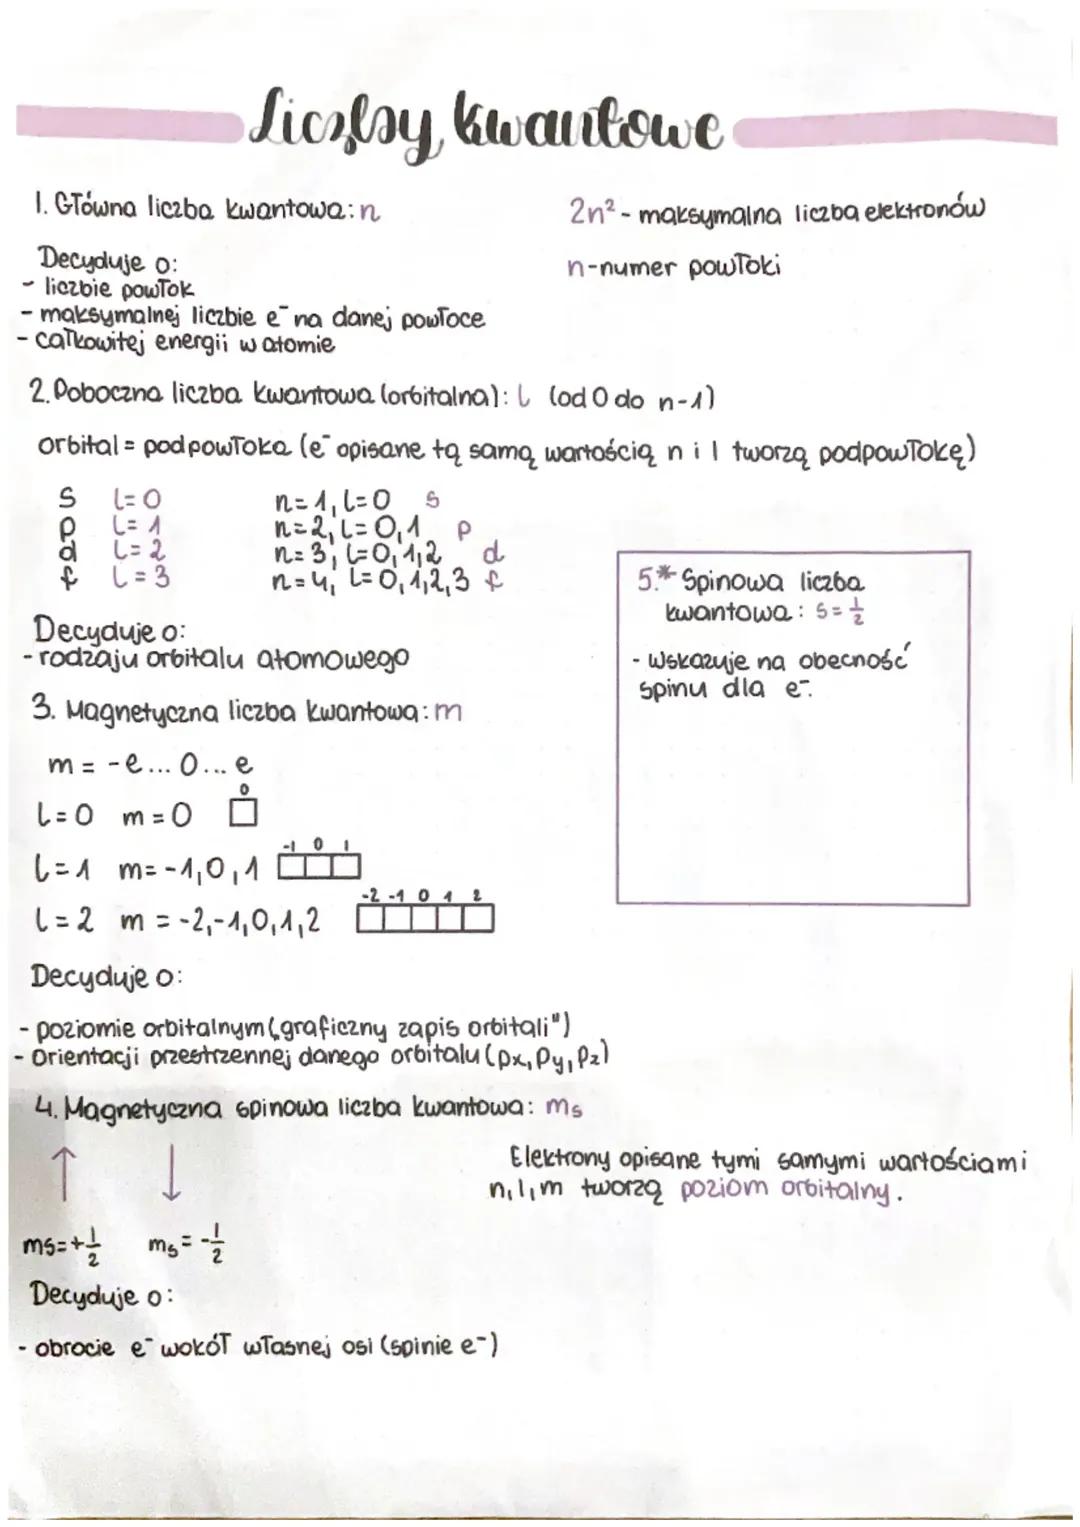 Liczby kwantowe
1. Główna liczba kwantowa: n
2n² - maksymalna liczba elektronów
n - numer powłoki
Decyduje o:
- liczbie powłok
- maksymalnej liczbie e⁻ na danej powłoce
- całkowitej energii w atomie
2. Poboczna liczba kwantowa (orbitalna): l (od 0 do n-1)
orbital = podpowłoka (e⁻ opisane tą samą wartością n i l tworzą podpowłokę)
s l=0 n=1, l=0 s
p l=1 n=2, l=0,1 p
d l=2 n=3, l=0,1,2 d
f l=3 n=4, l=0,1,2,3 f
Decyduje o:
- rodzaju orbitalu atomowego
5.* Spinowa liczba
kwantowa: s=1/2
- wskazuje na obecność
spinu dla e⁻.
3. Magnetyczna liczba kwantowa: m
m = -e... 0... e
0
l=0 m=0
-1 0 1
l=1 m=-1,0,1
-2 -1 0 1 2
l=2 m=-2,-1,0,1,2
Decyduje o:
- poziomie orbitalnym („graficzny zapis orbitali")
- orientacji przestrzennej danego orbitalu (px, py, pz)
4. Magnetyczna spinowa liczba kwantowa: ms
↑ ↓
Elektrony opisane tymi samymi wartościami
n, l, m tworzą poziom orbitalny.
ms=+1/2 ms=-1/2
Decyduje o:
- obrocie e⁻ wokół własnej osi (spinie e⁻)